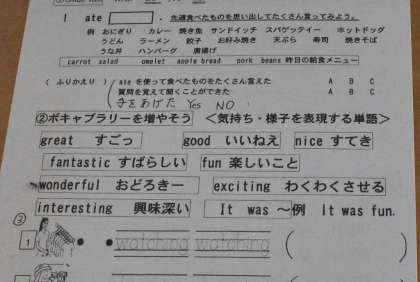 I ate . 先週食べたものを思い出してたくさん言ってみよう。
例 おにぎり カレー 焼き魚 サンドイッチ スパゲッテイー ホットドッグ
うどん ラーメン 餃子 お好み焼き 天ぷら 寿司 焼きそば
うな丼 ハンバーグ 唐揚げ
carrot salad omelet apple bread pork beans 昨日の給食メニュー
(ふりかえり) ate を使って食べたものをたくさん言えた A B C
質問を覚えて聞くことができた A B C
手をあげた Yes NO
②ボキャブラリーを増やそう <気持ち・様子を表現する単語>
great すごっ good いいねえ nice すてき
fantastic すばらしい fun 楽しいこと
wonderful おどろきー exciting わくわくさせる
interesting 興味深い It was ～例 It was fun.
③
1 watching watching